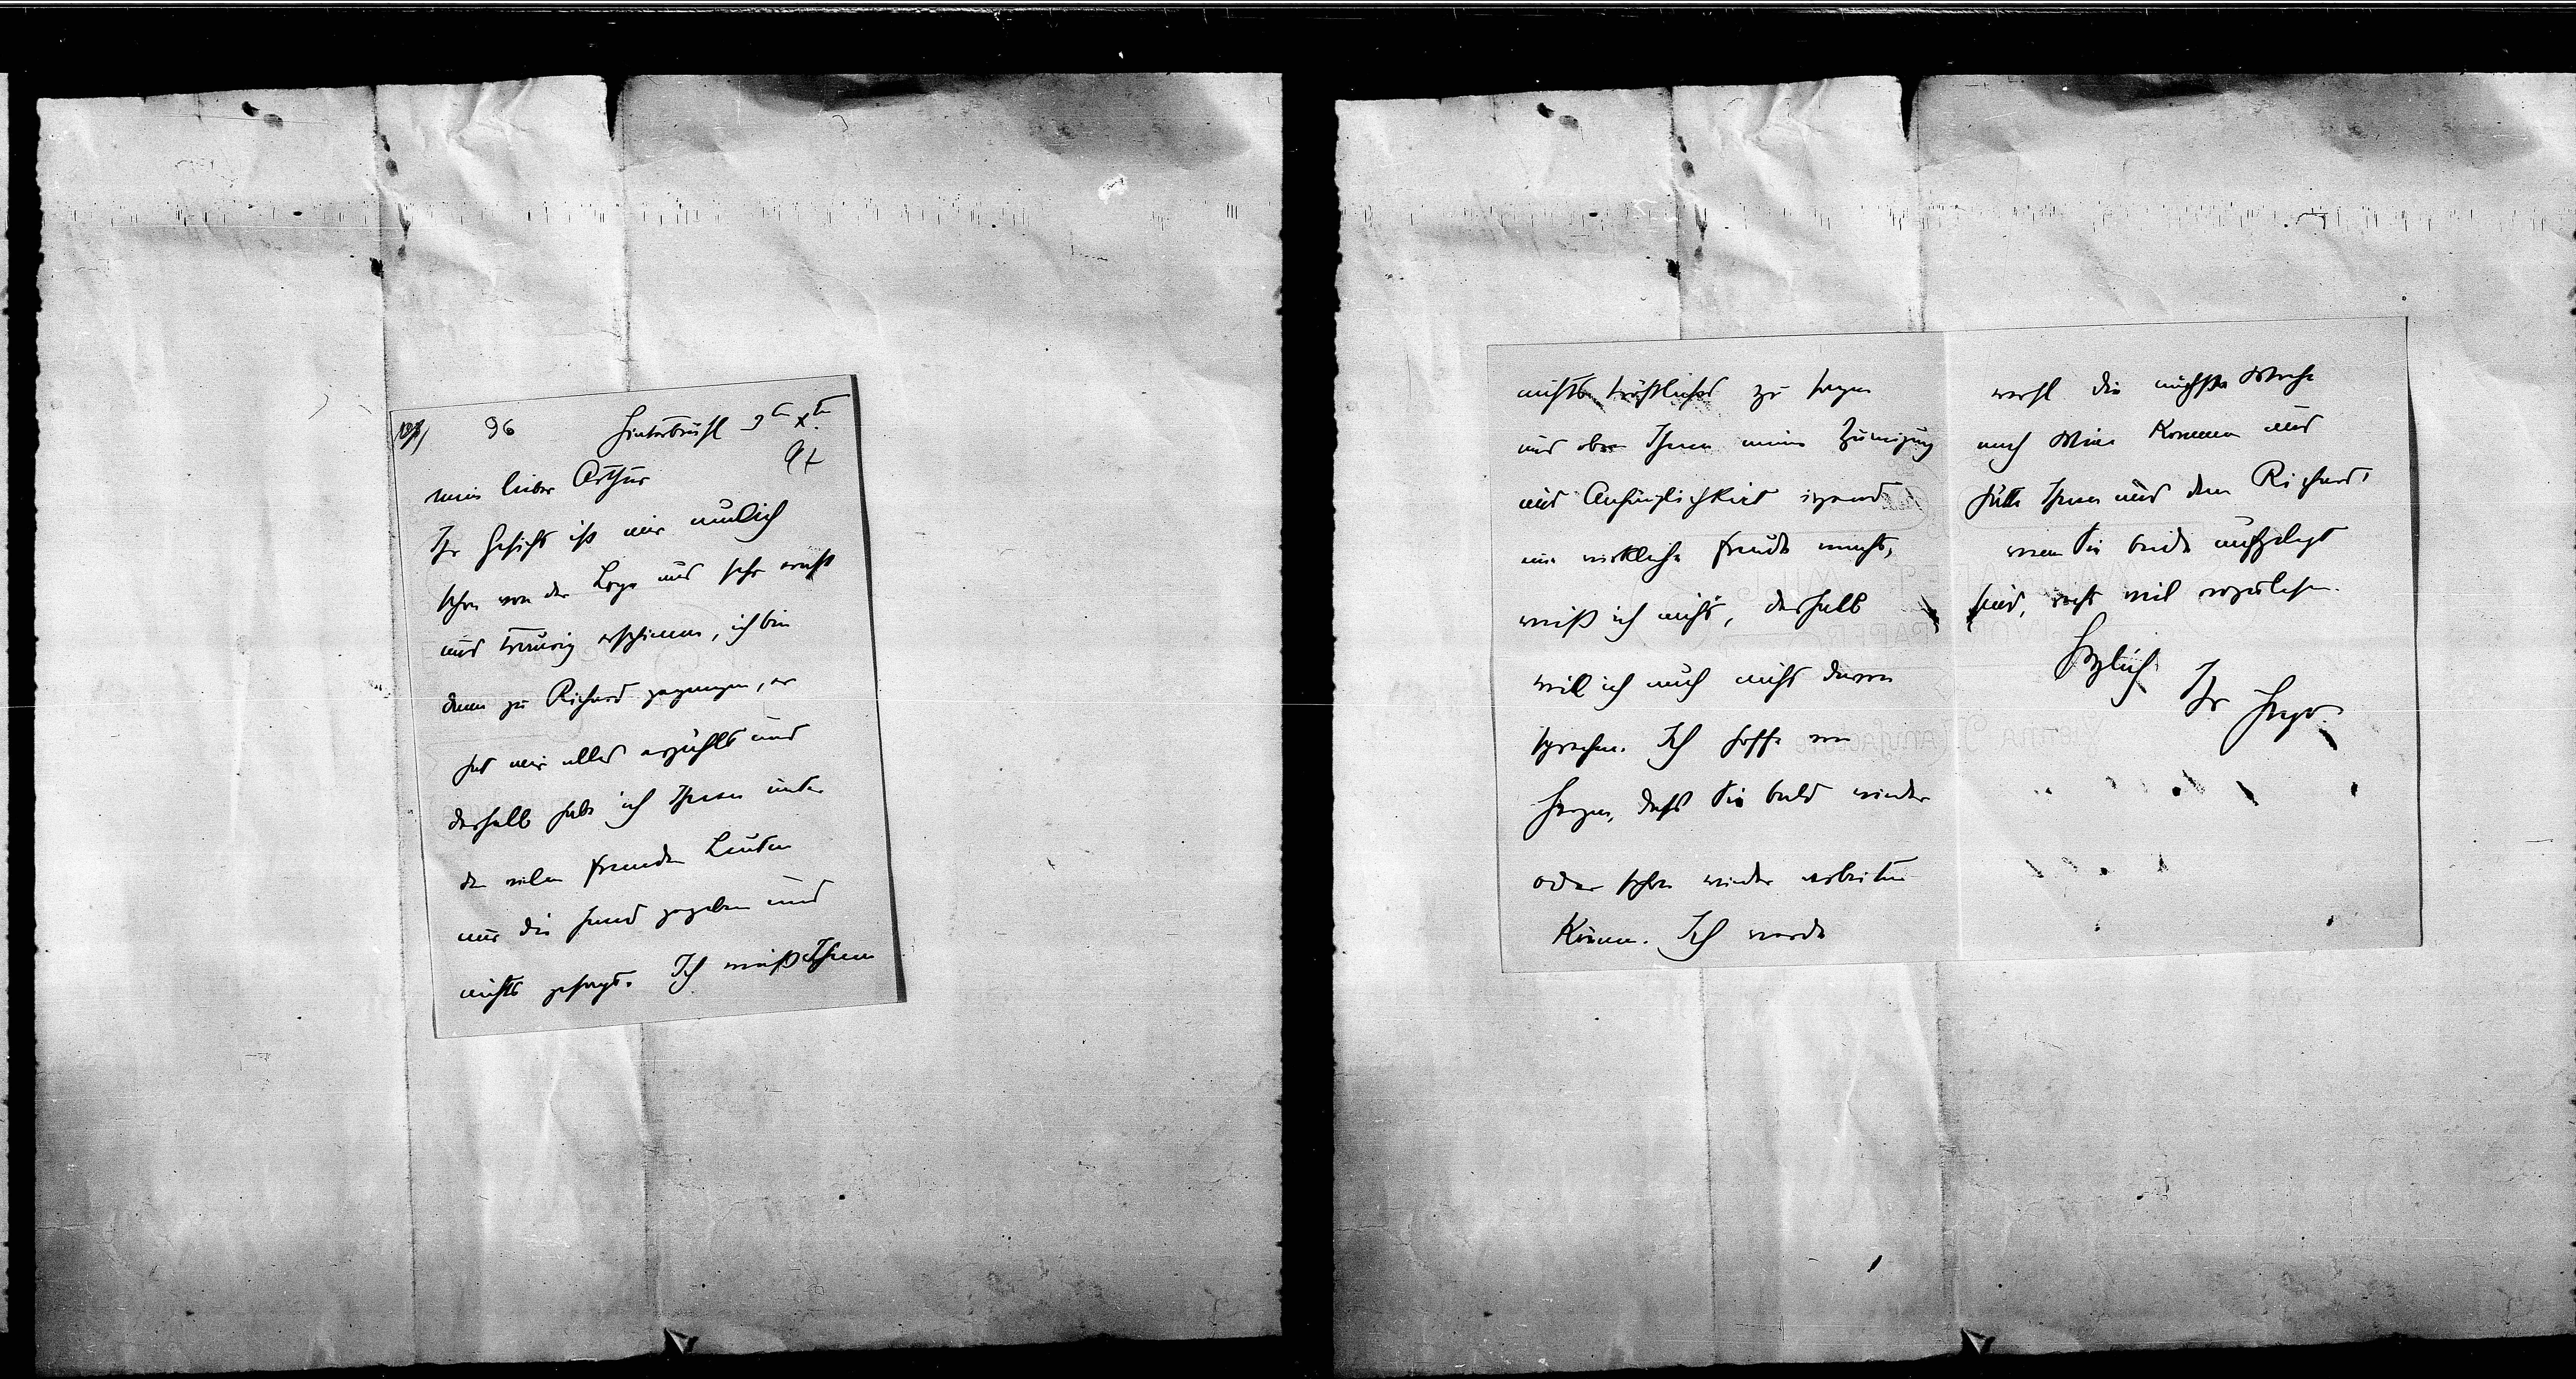 96 Hinterbrühl 9ten Xten
97
mein lieber Arthur
Ihr Gesicht ist mir neulich
schon von der Loge aus sehr ernst
und traurig erschienen, ich bin
dann zu Richard gegangen, er
hat mir alles erzählt und
deshalb habe ich Ihnen unter
den vielen fremden Leuten
nur die Hand gegeben und
nichts gesagt. Ich weiß Ihnen
nichts tröstliches zu sagen
und ob Ihnen meine Zuneigung
und Anhänglichkeit irgend
eine wirkliche Freude macht,
weiß ich nicht, deshalb
will ich auch nicht davon
sprechen. Ich hoffe von
Herzen, dass Sie bald wieder
oder schon wieder arbeiten
können. Ich werde
wohl die nächste Woche
nach Wien kommen und
hätte Ihnen und dem Richard,
wenn Sie beide aufgelegt
sind, recht viel vorzulesen.
Herzlich
Ihr Hugo.